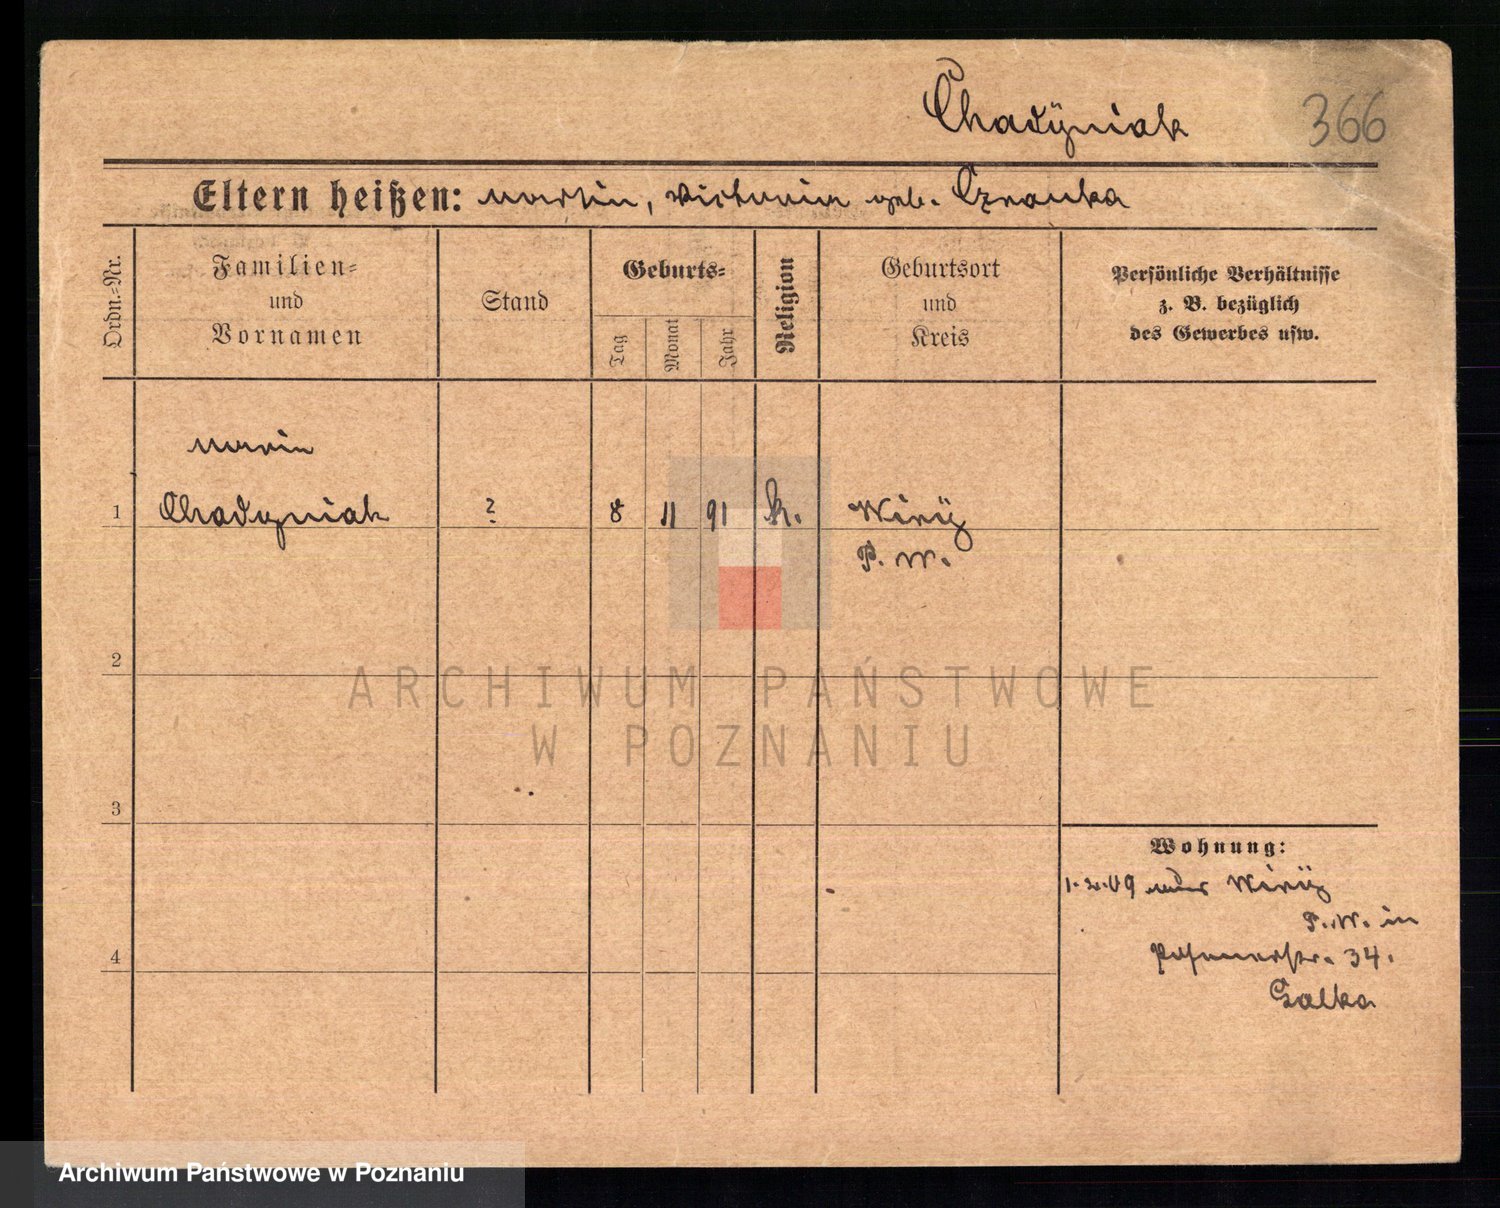 Chadÿniak
366
Eltern heißen: Martin, Victoria geb. Czranka
Ordn.=Nr.
Familien= und Vornamen
Stand
Geburts=
Tag
Monat
Jahr
Religion
Geburtsort und Kreis
Persönliche Verhältnisse
z. B. bezüglich
des Gewerbes usw.
Maria
1 Chadyniak ? 8 11 91 k. Wirÿ
P. W.
2
3
4
Wohnung:
1.2.09 aus Wirÿ
P. W. in
Posenerstr. 34.
Galka
ARCHIWUM PAŃSTWOWE
W POZNANIU
Archiwum Państwowe w Poznaniu